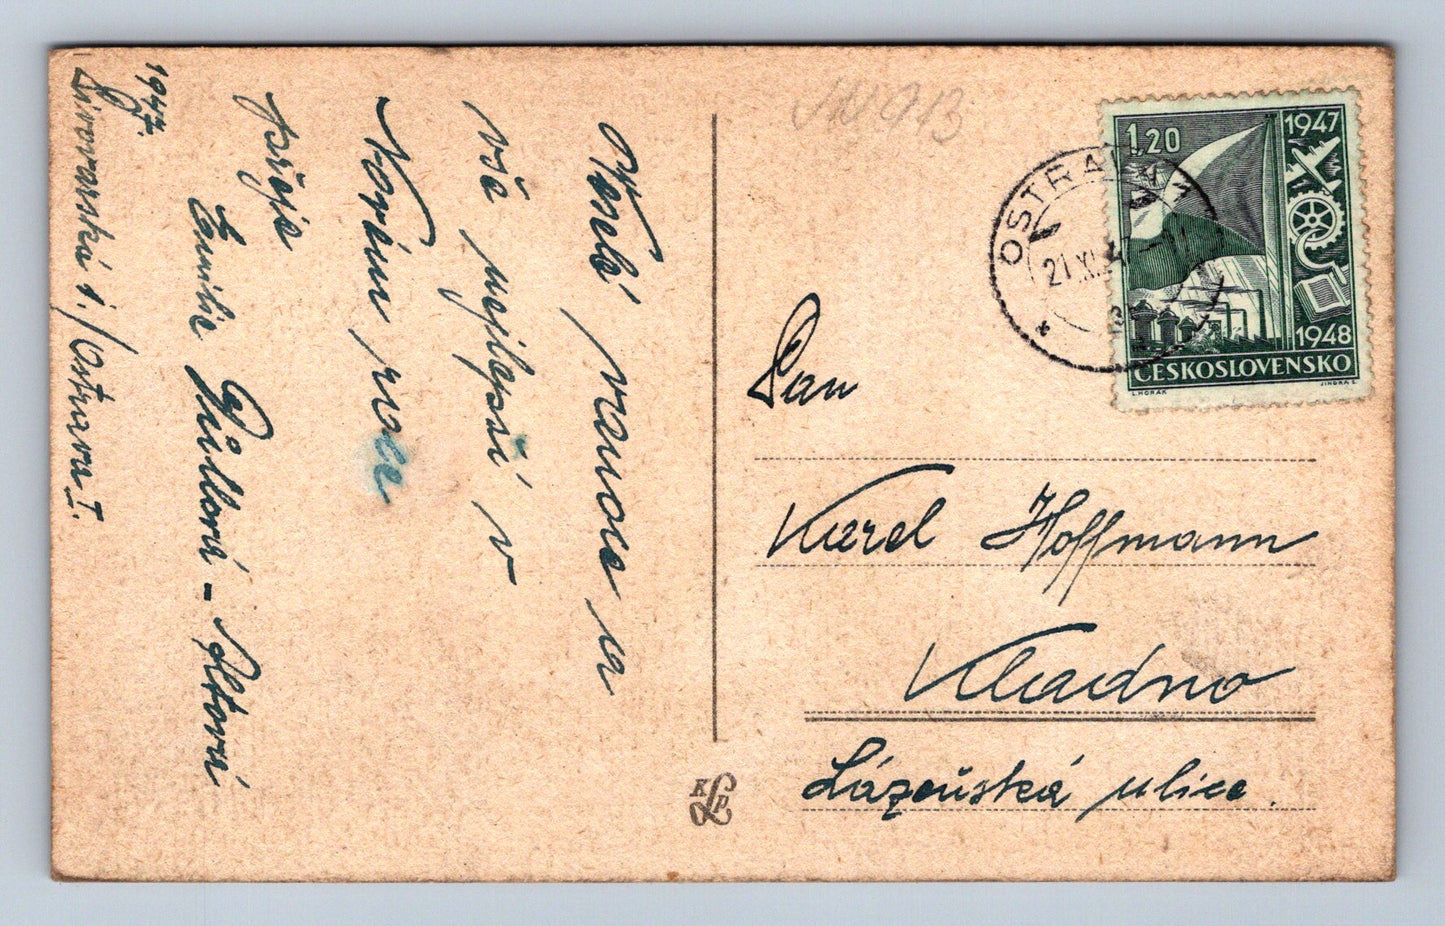 Veselé vánoce a
vše nejlepší v
Novém roce
přeje
Emilie
1947.
Pivovarská 1./Ostrava I.
1.20
1947
1948
ČESKOSLOVENSKO
L.HORÁK
JINDRA S.
OSTRAVA 1
21.XI.47
Pan
Karel Hoffmann
Kladno
Lázeňská ulice.
KLP